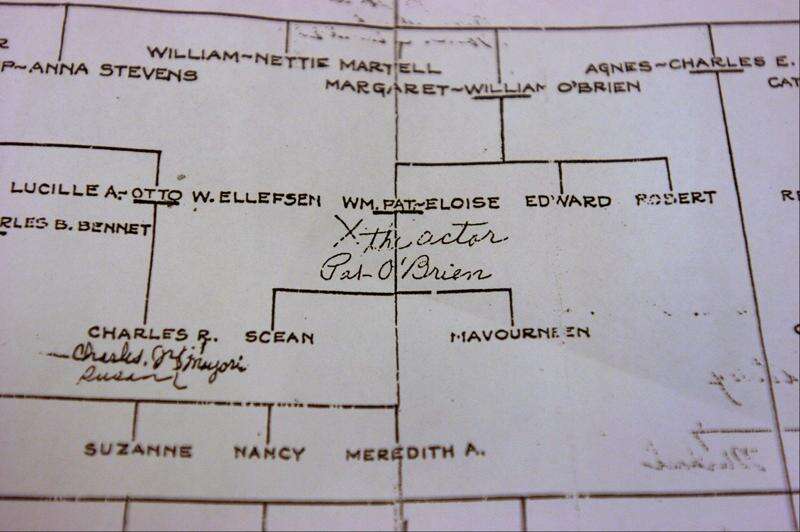 WILLIAM~NETTIE MARTELL
P~ANNA STEVENS
AGNES~CHARLES E.
MARGARET~WILLIAM O'BRIEN
CAT
LUCILLE A.~OTTO W. ELLEFSEN
WM. PAT.~ELOISE
EDWARD
ROBERT
RLES B. BENNET
X the actor
Pat O'Brien
CHARLES R.
SCEAN
MAVOURNEEN
Charles, Jr.
Susan
SUZANNE
NANCY
MEREDITH A.